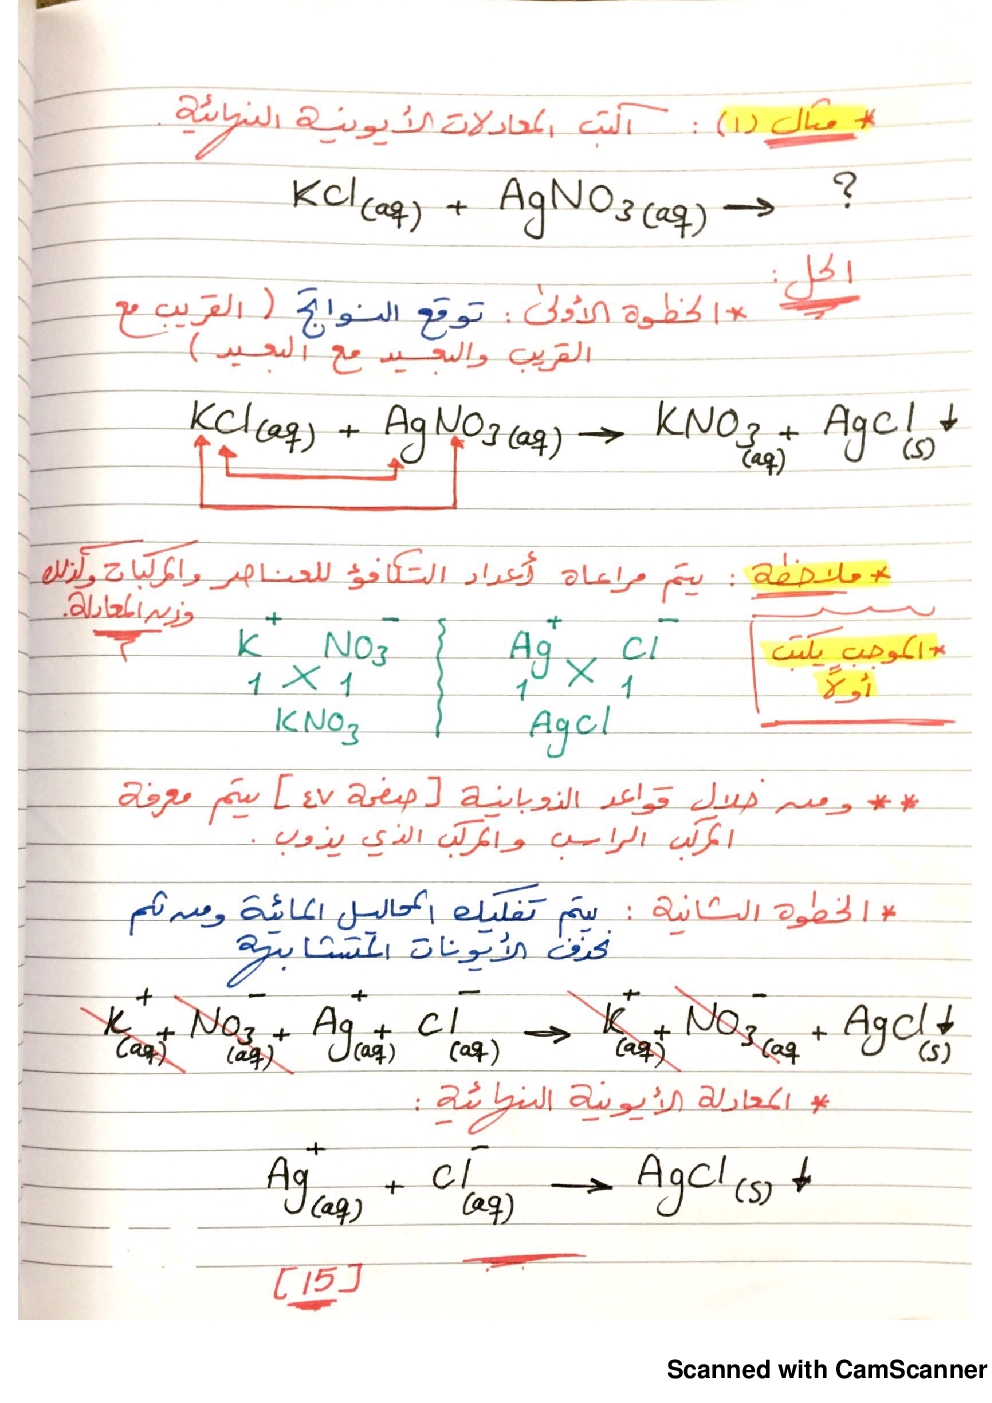 * مثال (١) : اكتب المعادلات الأيونية النهائية .
KCl(aq) + AgNO3(aq) → ?
الحل :
* الخطوة الأولى : توقع النواتج ( القريب مع
القريب والبعيد مع البعيد )
KCl(aq) + AgNO3(aq) → KNO3(aq) + AgCl(s)↓
* ملاحظة : يتم مراعاة أعداد التكافؤ للعناصر والمركبات وكذلك
وزن المعادلة.
K⁺ NO3⁻ Ag⁺ Cl⁻
1 X 1 1 X 1
KNO3 AgCl
* الموجب يكتب
أولاً
** ومن خلال قواعد الذوبانية [صفحة ٤٧] يتم معرفة
المركب الراسب والمركب الذي يذوب .
* الخطوة الثانية : يتم تفكيك المحاليل المائية ومن ثم
نحذف الأيونات المتشابهة
K⁺(aq) + NO3⁻(aq) + Ag⁺(aq) + Cl⁻(aq) → K⁺(aq) + NO3⁻(aq + AgCl(s)↓
* المعادلة الأيونية النهائية :
Ag⁺(aq) + Cl⁻(aq) → AgCl(s)↓
[15]
Scanned with CamScanner